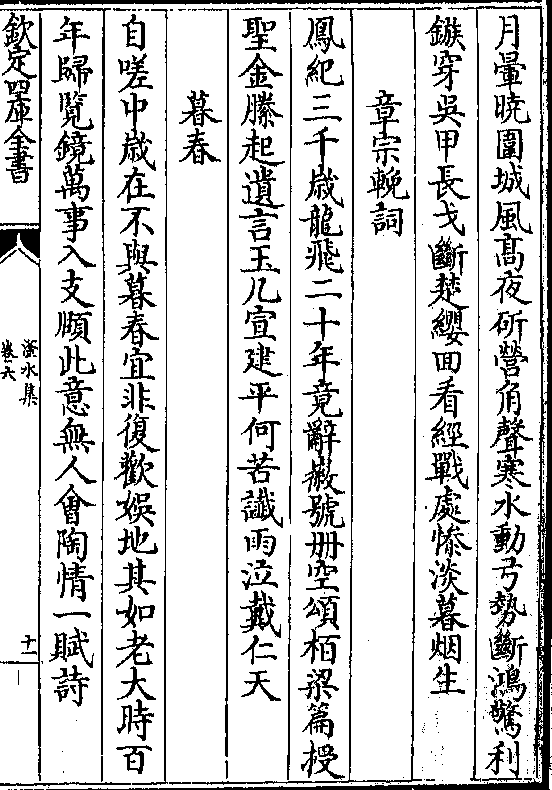 月暈曉圍城風髙夜斫營角聲寒水動弓勢斷鴻驚利
鏃穿吳甲長戈斷楚纓回看經戰處慘淡暮烟生
章宗輓詞
鳳紀三千歲龍飛二十年竟辭徽號册空頌栢梁篇授
聖金縢起遺言玉几宣建平何苦讖雨泣戴仁天
暮春
自嗟中歲在不與暮春宜非復歡娛地其如老大時百
年歸覽鏡萬事入支頤此意無人會陶情一賦詩
欽定四庫全書
滏水集
卷六
十一